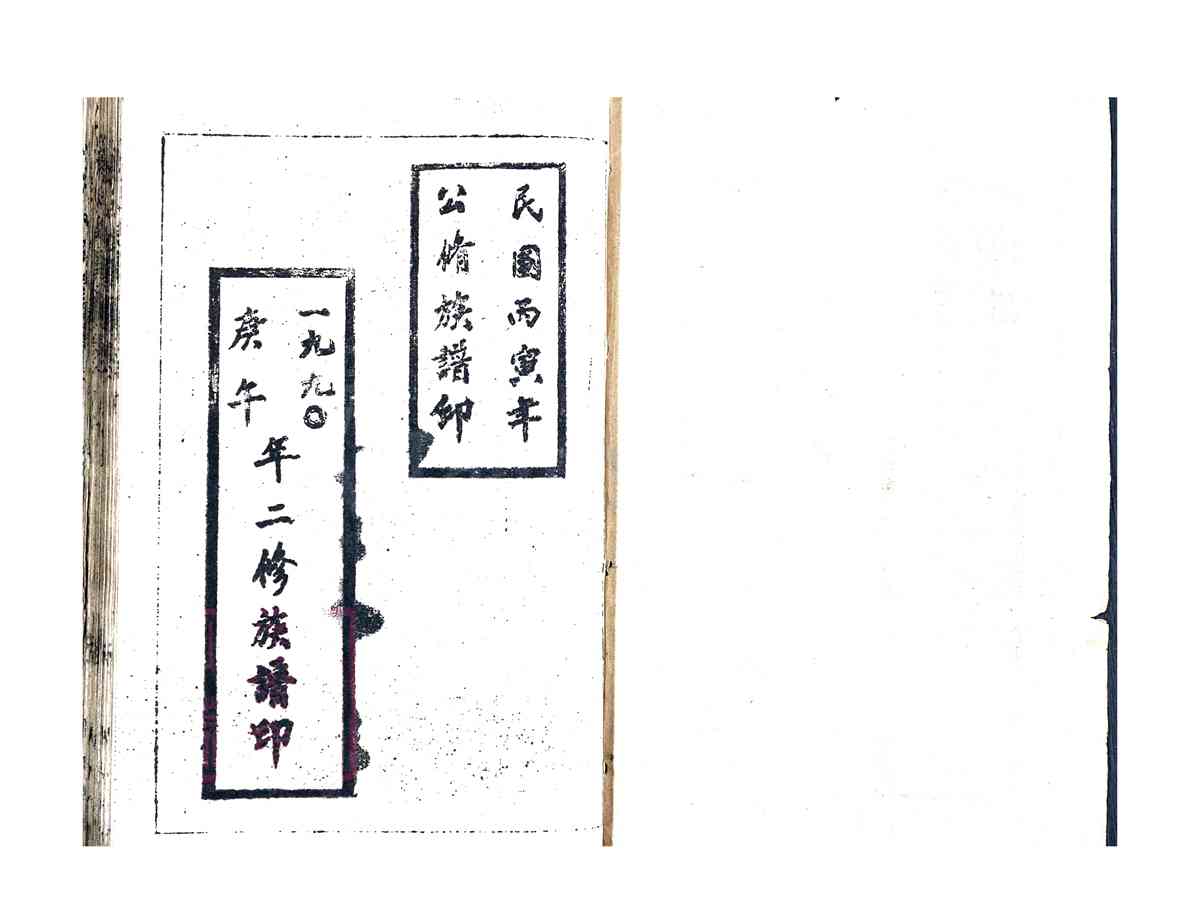 民國丙寅年
公脩族譜印
一九九〇
庚午
年二修族譜印